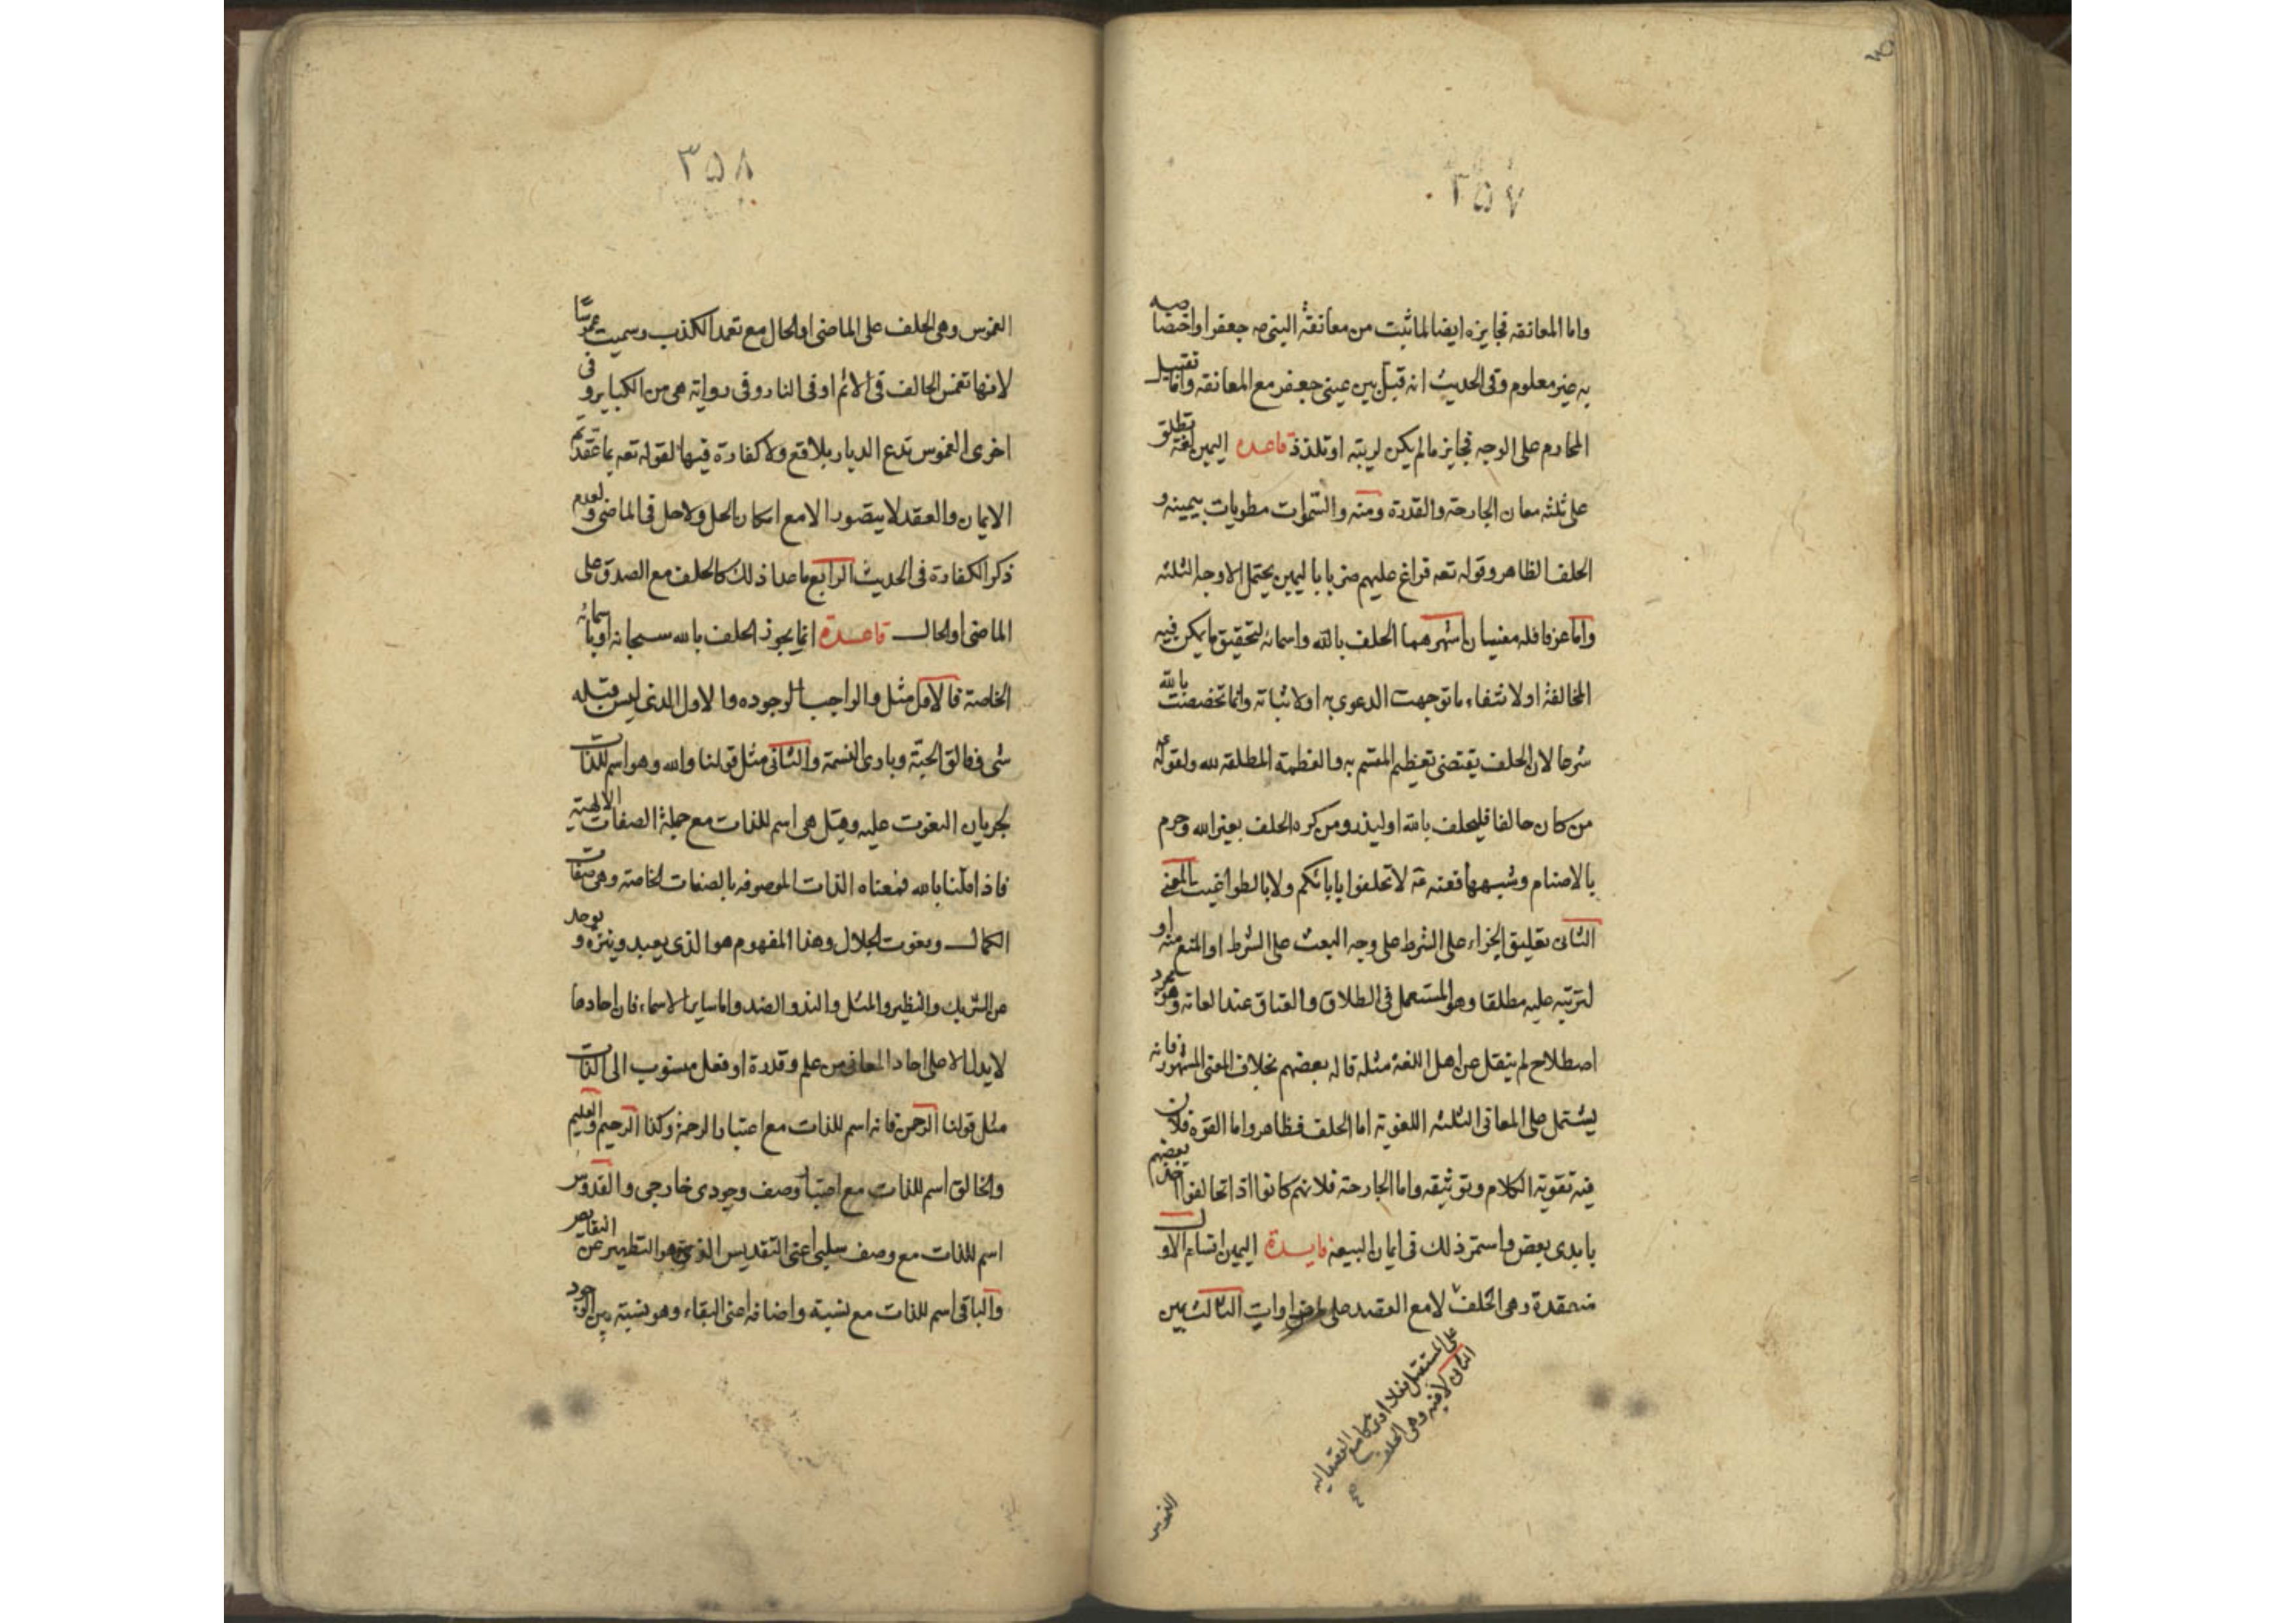 ٣٥٧
واما المعانقه فجايزه ايضا لما ثبت من معانقة النبى صه جعفرا واختصاصه
به غير معلوم وفى الحديث انه قبل بين عينى جعفر مع المعانقه واما تقبيل
المحارم على الوجه فجايز مالم يكن لريبته او تلذذ قاعده اليمين لغة تطلق
على ثلثه معان الجارحة والقدرة ومنه والسموات مطويات بيمينه و
الحلف الظاهر وقوله تعه فراغ عليهم ضربا باليمين يحتمل الاوجه الثلثه
واما عرفا فله معنيان اشهرهما الحلف بالله واسمائه لتحقيق ما يمكن فيه
المخالفة او لانتفاء ما توجهت الدعوى به او لاثباته وانما تخصصت بالله
شرعا لان الحلف يقتضى تعظيم المقسم به والعظمة المطلقه لله ولقوله ع
من كان حالفا فليحلف بالله او ليذر ومن كره الحلف بغير الله وحرم
بالاصنام وشبهها فعنه عه لا تحلفوا بابائكم ولا بالطواغيت المعنى
الثانى تعليق الجزاء على الشرط على وجه البعث على الشرط او المنع منه او
لترتبه عليه مطلقا وهو المستعمل فى الطلاق والعتاق عند العامه وهو مجرد
اصطلاح لم ينقل عن اهل اللغة مثله قاله بعضهم بخلاف المعنى المشهور فانه
يشتمل على المعانى الثلثه اللغوية اما الحلف فظاهر واما القوه فلان
فيه تقوية الكلام وتوثيقه واما الجارحة فلانهم كانوا اذا تحالفوا اخذ بعضهم
بايدى بعض واستمر ذلك فى ايمان البيعة فايدة اليمين اقسام الاول
منعقدة وهى الحلف لا مع العقد على الثالث يمين
على المستقبل فعلا او تركا مع القصد اليه
الثانى لاغيه وهى الحلف
صح
الغموس
٣٥٨
الغموس وهى الحلف على الماضى او الحال مع تعمد الكذب وسميت غموسا
لانها تغمس الحالف فى الاثم او فى النار وفى رواية هى من الكبائر وفى
اخرى الغموس تدع الديار بلاقع ولا كفارة فيها لقوله تعه بما عقدتم
الايمان والعقد لا يتصور الا مع امكان الحل ولا حل فى الماضى ولعدم
ذكر الكفارة فى الحديث الرابع ما عدا ذلك كالحلف مع الصدق على
الماضى او الحال قاعدة انما يجوز الحلف بالله سبحانه او باسمائه
الخاصة فالاول مثل والواجب الوجوده والاول الذى ليس قبله
شى وخالق الحبة وبارى النسمة والثانى مثل قولنا والله وهو اسم للذات
لجريان النعوت عليه وقيل هى اسم للذات مع جملة الصفات الالهية
فاذا قلنا بالله فمعناه الذات الموصوفه بالصفات الخاصه وهى صفات
الكمال ونعوت الجلال وهذا المفهوم هو الذى يعبد وينزه و يوحد
عن الشريك والنظير والمثل والند والضد واما ساير الاسماء فان احادها
لا يدل الا على احاد المعانى من علم وقدرة او فعل منسوب الى الذات
مثل قولنا الرحمن فانه اسم للذات مع اعتبار الرحمة وكذا الرحيم والعليم
والخالق اسم للذات مع اعتبار وصف وجودى خارجى والقدوس
اسم للذات مع وصف سلبى اعنى التقديس الذى هو التطهير عن النقايص
والباقى اسم للذات مع نسبة واضافه اعنى البقاء وهو نسبته بين الوجود